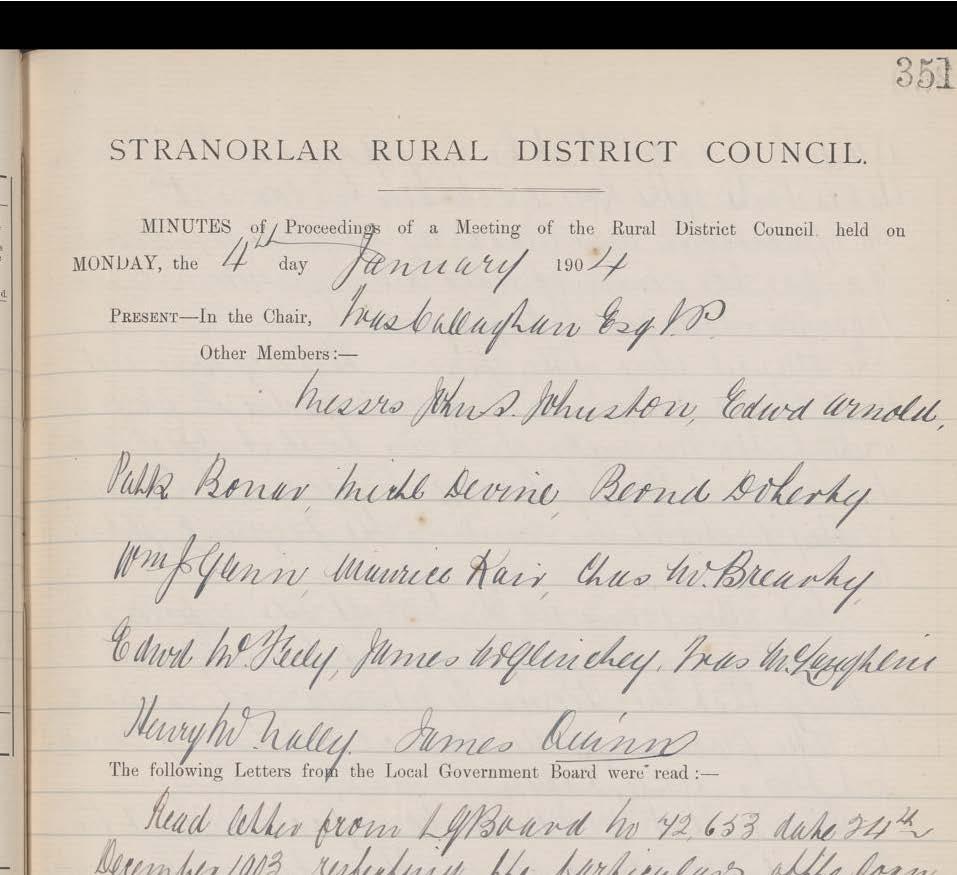 351
STRANORLAR RURAL DISTRICT COUNCIL.
MINUTES of Proceedings of a Meeting of the Rural District Council held on
MONDAY, the 4th day January 1904
PRESENT—In the Chair, Callaghan Esq J.P
Other Members:—
Messrs John S. Johnston, Edwd Arnold,
Patk Bonar, Michl Devine, Bernd Doherty
Wm J Gann, Maurice Kair, Chas McBrearty,
Edwd McFeely, James McGlinchey, McLaughlin
Henry McNally. James Quinn
The following Letters from the Local Government Board were read :—
Read letter from LGBoard No 72,653 date 24th
December 1903 respecting the particulars of the loan